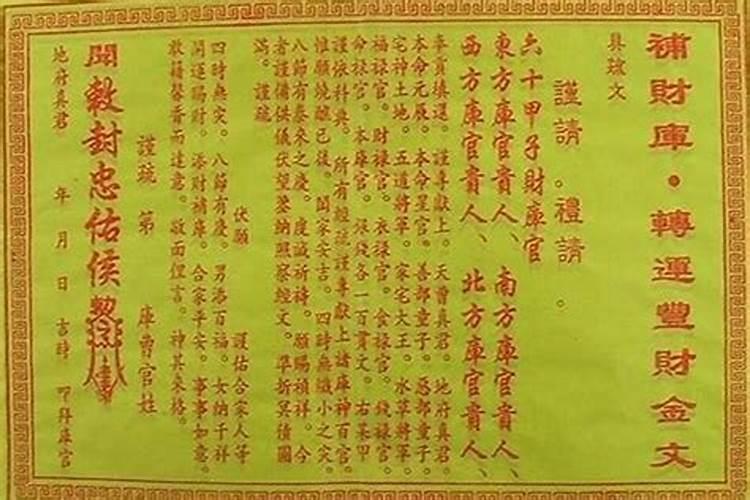 補財庫·轉運豐財金文
具疏文
謹請。禮請。
六十甲子財庫官
東方庫官貴人、南方庫官貴人、
西方庫官貴人、北方庫官貴人、
奉貢填還。謹專獻上。天曹真君。地府真君。
本命元辰。本命星官。善部童子。惡部童子。
宅神土地。五道將軍。家宅大王。水草將軍。
福祿官。財祿官。衣祿官。食祿官。錢祿官。
命祿官。本庫官。銀錢各一百貫文。右某甲
謹依科典。所有經疏謹專獻上諸庫神百官。
惟願燒醮已後。閤家安吉。四時無纖小之災。
八節有泰來之慶。虔誠所禱。願賜禎祥。今
者謹備供儀伏望鑒納照察經文。準折冥債圓
滿。謹疏
伏願 謹佑合家人等
四時無灾。八節有慶。男添百福。女納千祥
開運賜財。添財補庫。合家平安。事事如意。
敢藉馨香而達意。敬面俚言。神其來格。
謹疏 第 庫曹官姓
開敕封忠佑侯
地府真君 年 月 日 吉時 叩拜庫官